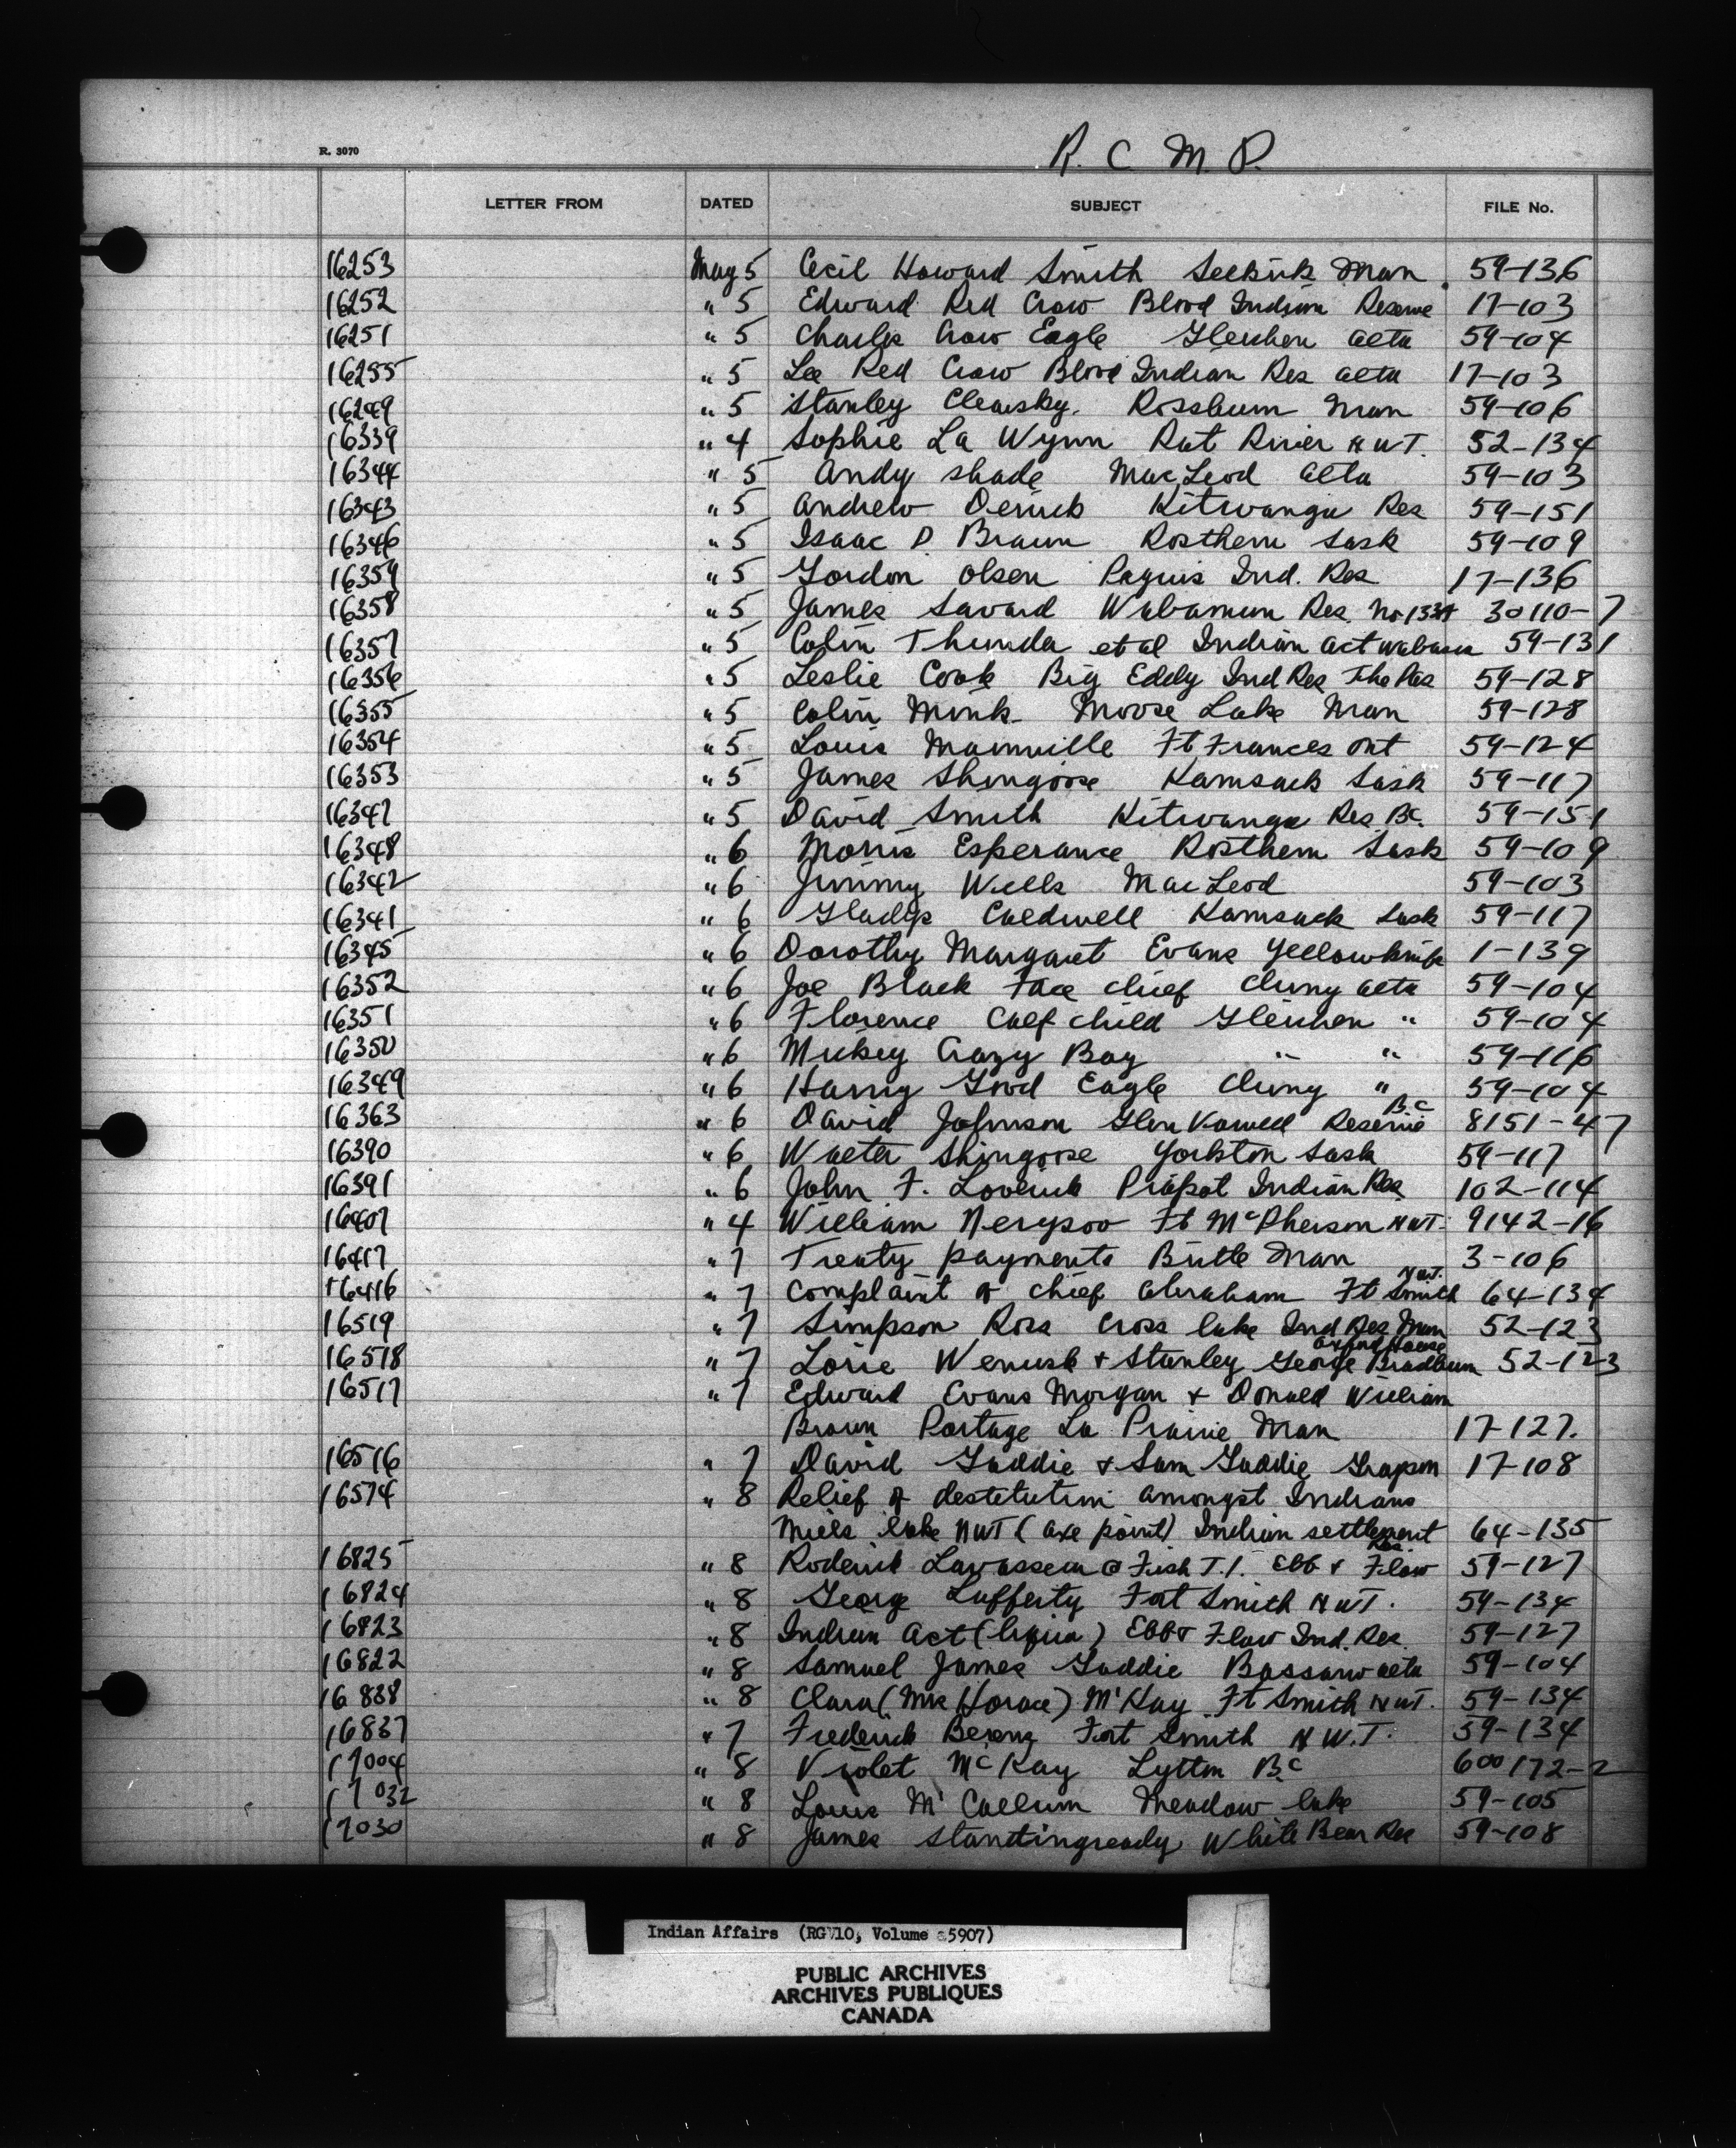 R. 3070
R. C. M. P.
LETTER FROM DATED SUBJECT FILE No.
16253 May 5 Cecil Howard Smith Selkirk Man. 59-136
16252 " 5 Edward Red Crow Blood Indian Reserve 17-103
16251 " 5 Charlie Crow Eagle Gleichen Alta 59-104
16255 " 5 Lee Red Crow Blood Indian Res Alta 17-103
16249 " 5 Stanley Clearsky. Rossburn Man 59-106
16339 " 4 Sophie La Wynn Rat River N WT. 52-134
16344 " 5 Andy Shade MacLeod Alta 59-103
16343 " 5 Andrew Derrick Kitwanga Res 59-151
16346 " 5 Isaac P. Braun Rosthern Sask 59-109
16359 " 5 Gordon Olsen Peguis Ind. Res 17-136
16358 " 5 James Savard Wabamun Res. No 133A 30110-7
16357 " 5 Colin Thunda et al Indian Act 59-131
16356 " 5 Leslie Cook Big Eddy Ind Res The Pas 59-128
16355 " 5 Colin Monk Moose Lake Man 59-128
16354 " 5 Louis Mainville Ft Frances Ont 59-124
16353 " 5 James Shingoose Kamsack Sask 59-117
16347 " 5 David Smith Kitwanga Res. BC. 59-151
16348 " 6 Morris Esperance Rosthern Sask 59-109
16342 " 6 Jimmy Wells MacLeod 59-103
16341 " 6 Gladys Caldwell Kamsack Sask 59-117
16345 " 6 Dorothy Margaret Evans Yellowknife 1-139
16352 " 6 Joe Black Face Chief Cluny Alta 59-104
16351 " 6 Florence Calf child Gleichen " 59-104
16350 " 6 Mickey Crazy Boy " " 59-116
16349 " 6 Harry Good Eagle Cluny " 59-104
16363 " 6 David Johnson Glen Vowell Reserve BC 8151-47
16390 " 6 Walter Shingoose Yorkton Sask 59-117
16391 " 6 John F. Piapot Indian Res 102-114
16407 " 4 William Nerysoo Ft McPherson NWT. 9142-16
16417 " 7 Treaty payments Birtle Man 3-106
16416 " 7 Complaint of Chief Abraham Ft Smith NWT. 64-134
16519 " 7 Simpson Ross Cross Lake Ind Res Man 52-123
16518 " 7 Lorie Wenusk & Stanley George Bradburn Oxford House 52-123
16517 " 7 Edward Evans Morgan & Donald William
Brown Portage La Prairie Man 17-127.
16516 " 7 David Gaddie & Sam Gaddie Grayson 17-108
16574 " 8 Relief of destitution amongst Indians
Mills lake NWT (axe point) Indian settlement 64-135
16825 " 8 Roderick @ Fish T.1. Ebb & Flow Res. 59-127
16824 " 8 George Lafferty Fort Smith NWT. 59-134
16823 " 8 Indian Act (liquor) Ebb & Flow Ind. Res. 59-127
16822 " 8 Samuel James Gaddie Bassano Alta 59-104
16838 " 8 Clara (Mrs Horace) McKay Ft Smith NWT. 59-134
16837 " 7 Frederick Fort Smith N W.T. 59-134
17004 " 8 Violet McKay Lytton BC 600172-2
17032 " 8 Louis McCallum Meadow lake 59-105
17030 " 8 James Standingready White Bear Res 59-108
Indian Affairs (RG 10, Volume 5907)
PUBLIC ARCHIVES
ARCHIVES PUBLIQUES
CANADA